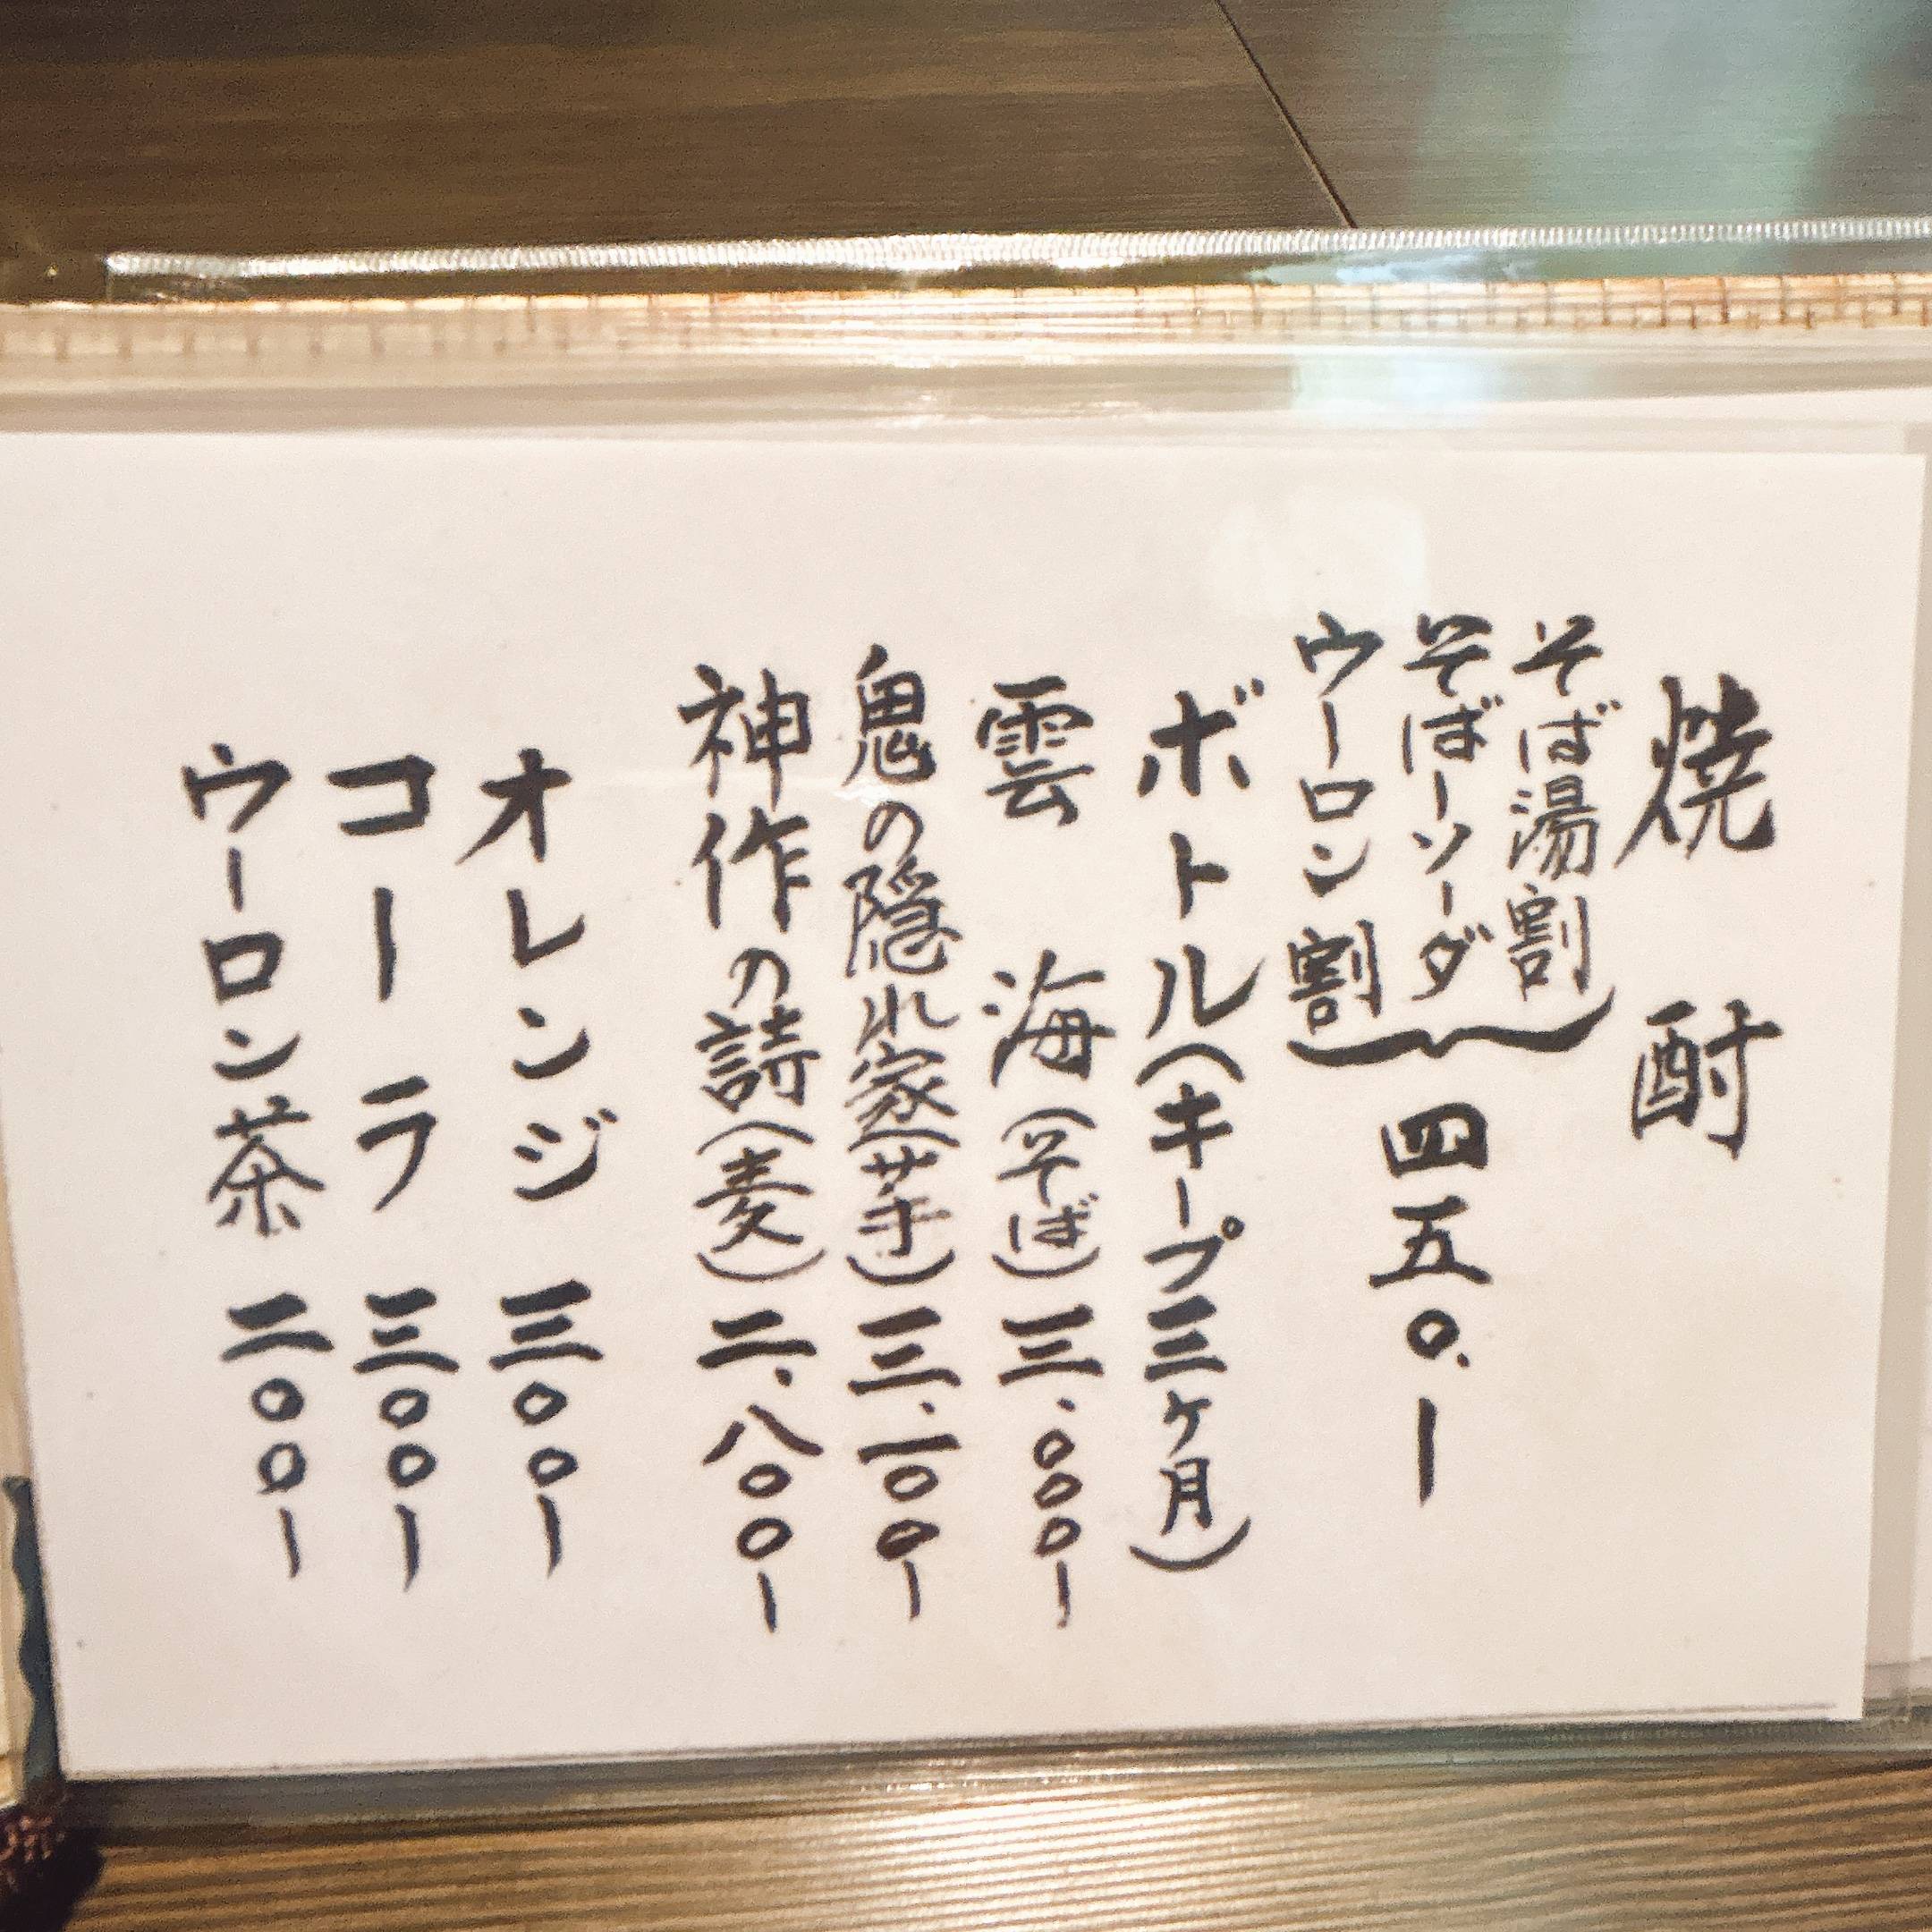 焼酎
そば湯割
そばーソーダ
ウーロン割
四五〇.ー
ボトル(キープ三ヶ月)
雲海(そば)三.〇〇〇ー
鬼の隠れ家(芋)三.一〇〇ー
神作の詩(麦)二.八〇〇ー
オレンジ 三〇〇ー
コーラ 三〇〇ー
ウーロン茶 二〇〇ー